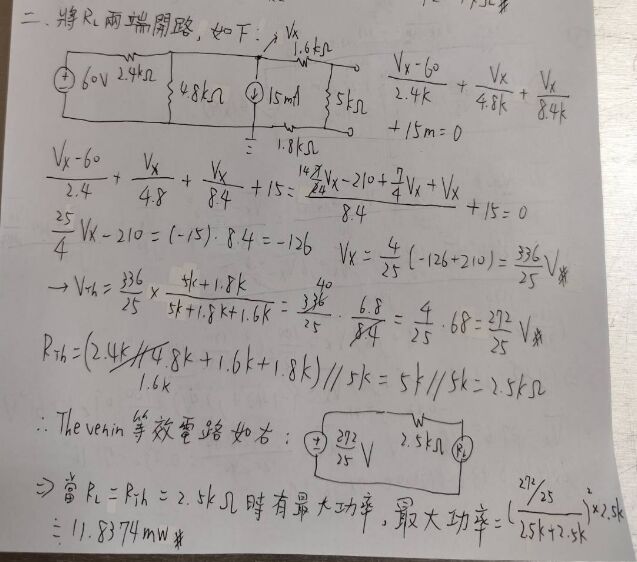 二、將RL兩端開路, 如下:
Vx
1.6kΩ
60V 2.4kΩ 4.8kΩ 15mA 5kΩ
1.8kΩ
(Vx-60)/2.4k + Vx/4.8k + Vx/8.4k
+15m=0
(Vx-60)/2.4 + Vx/4.8 + Vx/8.4 + 15 = (14/4 Vx-210+7/4 Vx+Vx)/8.4 + 15 = 0
25/4 Vx-210 = (-15)·8.4 = -126 Vx = 4/25 (-126+210) = 336/25 V※
→ VTh = 336/25 × (5k+1.8k)/(5k+1.8k+1.6k) = 336/25 · 6.8/8.4 = 4/25 · 68 = 272/25 V※
40
RTh = (2.4k//4.8k+1.6k+1.8k)//5k = 5k//5k = 2.5kΩ
1.6k
∴ Thevenin 等效電路如右:
272/25 V 2.5kΩ RL
⇒ 當 RL = RTh = 2.5kΩ 時有最大功率, 最大功率 = ((272/25)/(2.5k+2.5k))²×2.5k
≒ 11.8374mW※